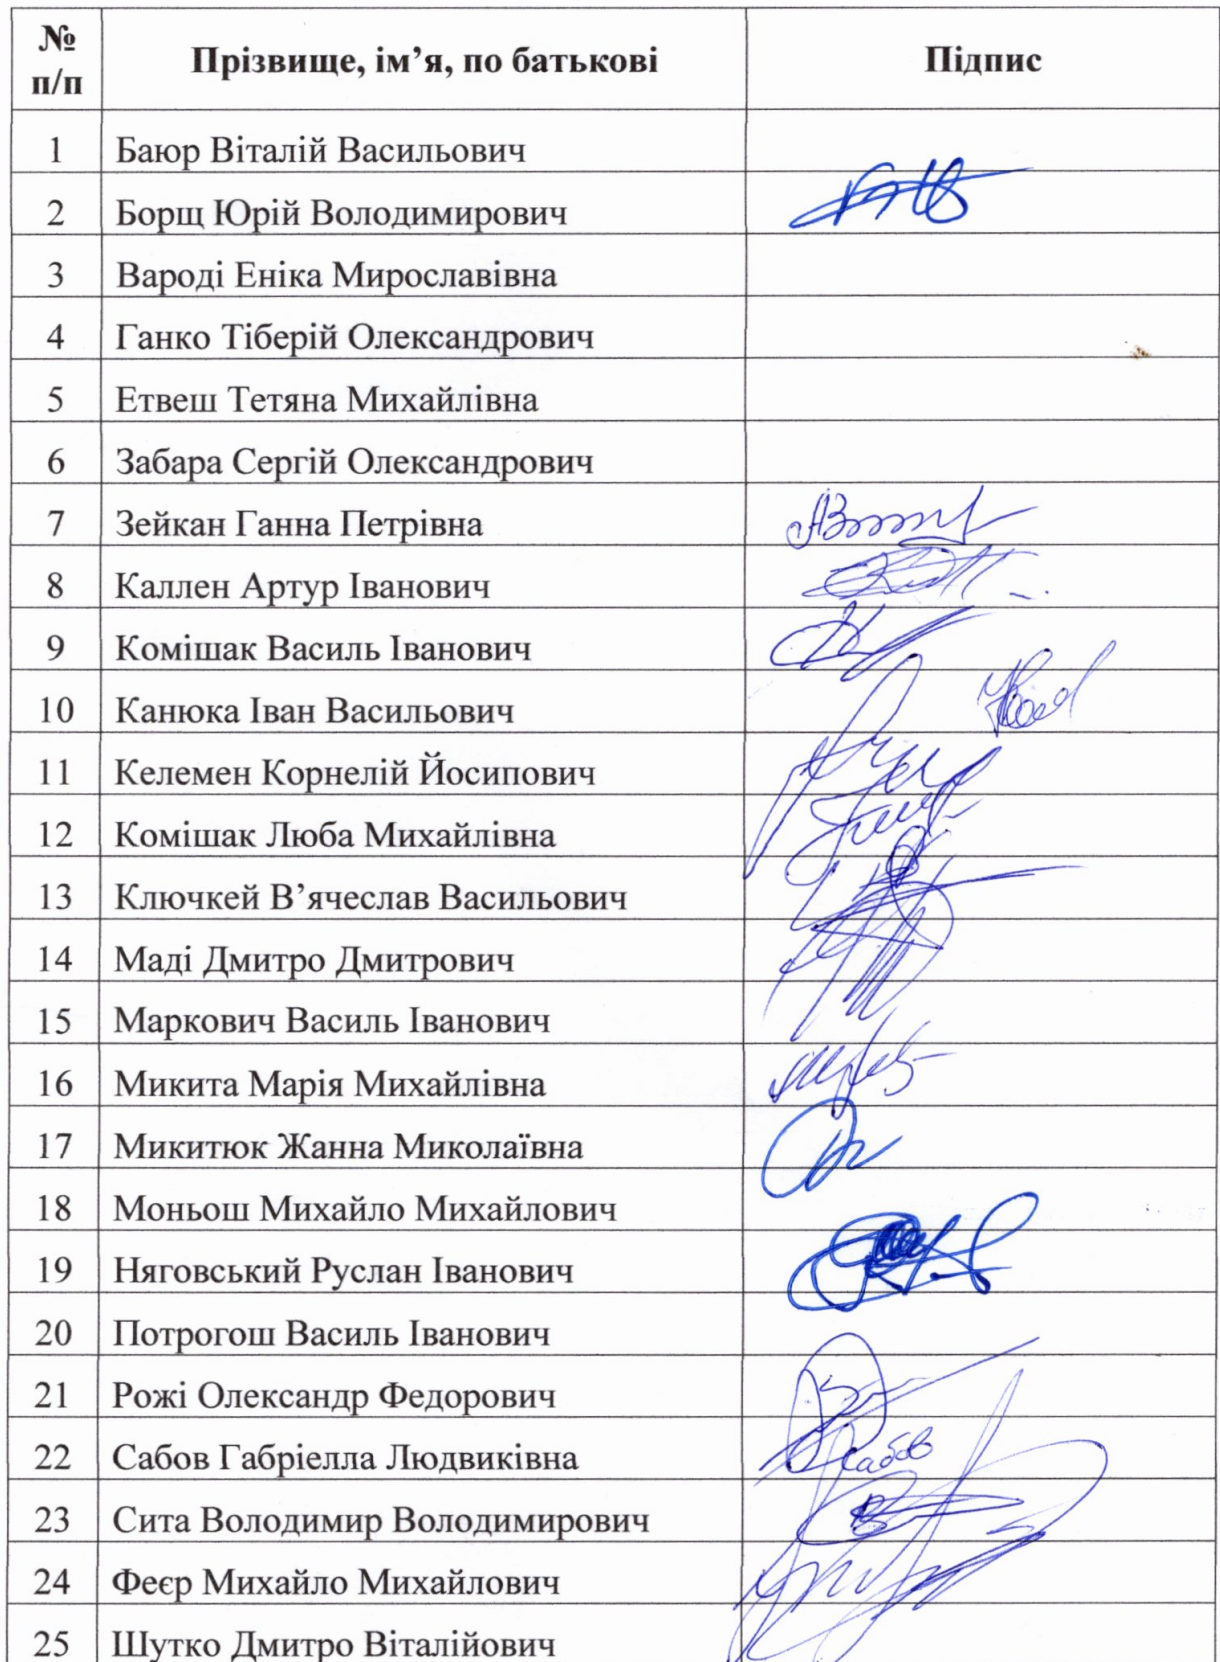 № п/п Прізвище, ім’я, по батькові Підпис
1 Баюр Віталій Васильович
2 Борщ Юрій Володимирович
3 Вароді Еніка Мирославівна
4 Ганко Тіберій Олександрович
5 Етвеш Тетяна Михайлівна
6 Забара Сергій Олександрович
7 Зейкан Ганна Петрівна
8 Каллен Артур Іванович
9 Комішак Василь Іванович
10 Канюка Іван Васильович
11 Келемен Корнелій Йосипович
12 Комішак Люба Михайлівна
13 Ключкей В’ячеслав Васильович
14 Маді Дмитро Дмитрович
15 Маркович Василь Іванович
16 Микита Марія Михайлівна
17 Микитюк Жанна Миколаївна
18 Моньош Михайло Михайлович
19 Няговський Руслан Іванович
20 Потрогош Василь Іванович
21 Рожі Олександр Федорович
22 Сабов Габріелла Людвиківна Сабов
23 Сита Володимир Володимирович
24 Феєр Михайло Михайлович
25 Шутко Дмитро Віталійович